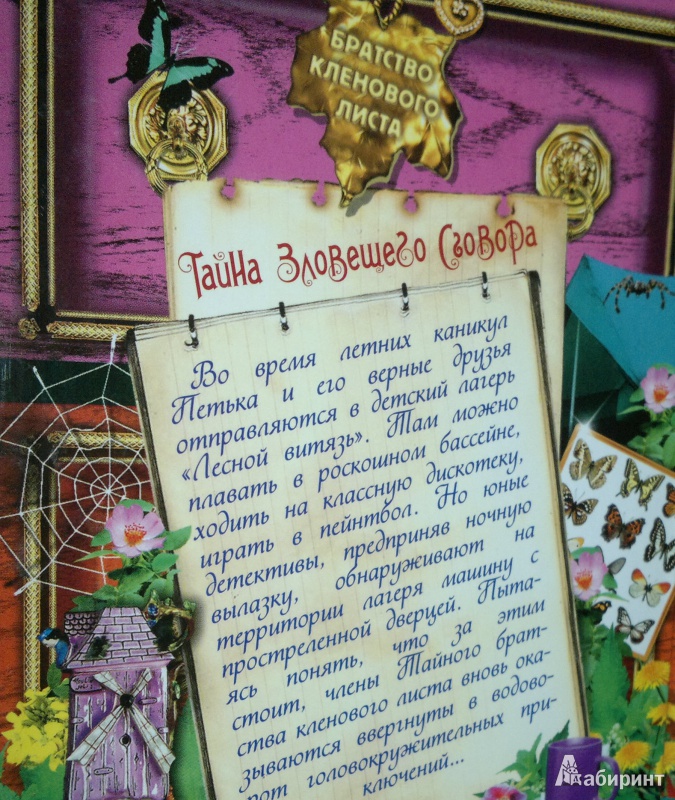 БРАТСТВО
КЛЕНОВОГО
ЛИСТА
Тайна Зловещего Сговора
Во время летних каникул
Петька и его верные друзья
отправляются в детский лагерь
«Лесной витязь». Там можно
плавать в роскошном бассейне,
ходить на классную дискотеку,
играть в пейнтбол. Но юные
детективы, предприняв ночную
вылазку, обнаруживают на
территории лагеря машину с
простреленной дверцей. Пыта-
ясь понять, что за этим
стоит, члены Тайного брат-
ства кленового листа вновь ока-
зываются ввергнуты в водово-
рот головокружительных при-
ключений...
Лабиринт